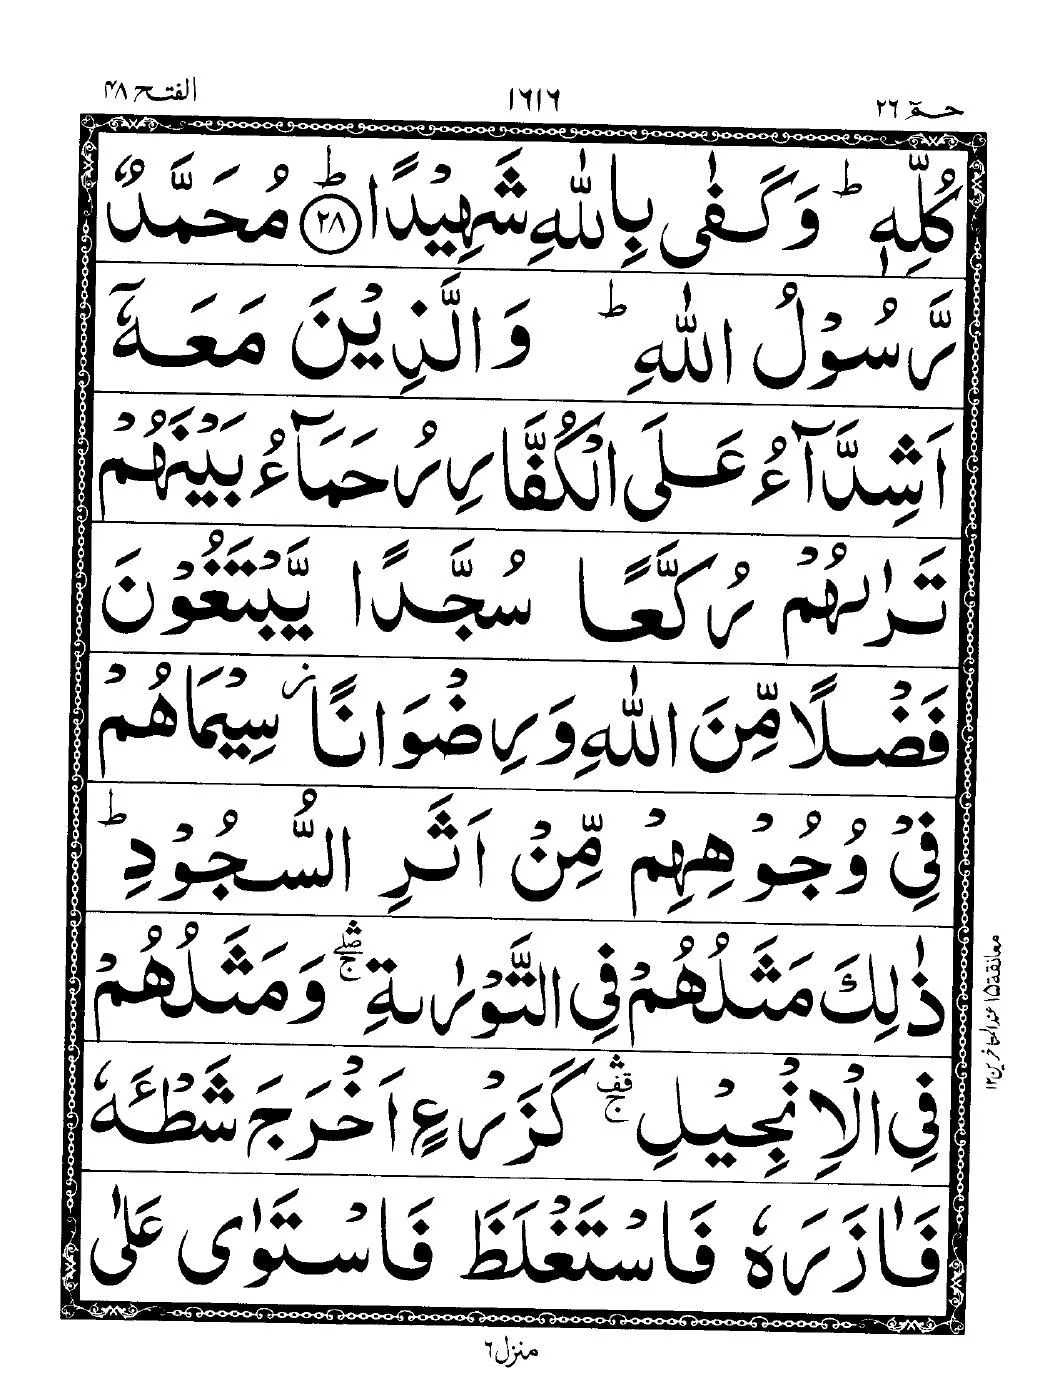 حمٓ ٢٦
١٦١٦
الفتح ٤٨
كُلِّهٖ ؕ وَكَفٰى بِاللّٰهِ شَهِيْدًا ؕ ﴿٢٨﴾ مُحَمَّدٌ
رَّسُوْلُ اللّٰهِ ؕ وَالَّذِيْنَ مَعَهٗۤ
اَشِدَّآءُ عَلَى الْكُفَّارِ رُحَمَآءُ بَيْنَهُمْ
تَرٰىهُمْ رُكَّعًا سُجَّدًا يَّبْتَغُوْنَ
فَضْلًا مِّنَ اللّٰهِ وَرِضْوَانًا ؗ سِيْمَاهُمْ
فِيْ وُجُوْهِهِمْ مِّنْ اَثَرِ السُّجُوْدِ ؕ
ذٰلِكَ مَثَلُهُمْ فِي التَّوْرٰىةِ ۛۖۚ وَمَثَلُهُمْ
فِي الْاِنْجِيْلِ ۛۚ قف كَزَرْعٍ اَخْرَجَ شَطْـَٔهٗ
فَاٰزَرَهٗ فَاسْتَغْلَظَ فَاسْتَوٰى عَلٰى
معانقة ١٥ عند المتأخرين ١٢
منزل ٦